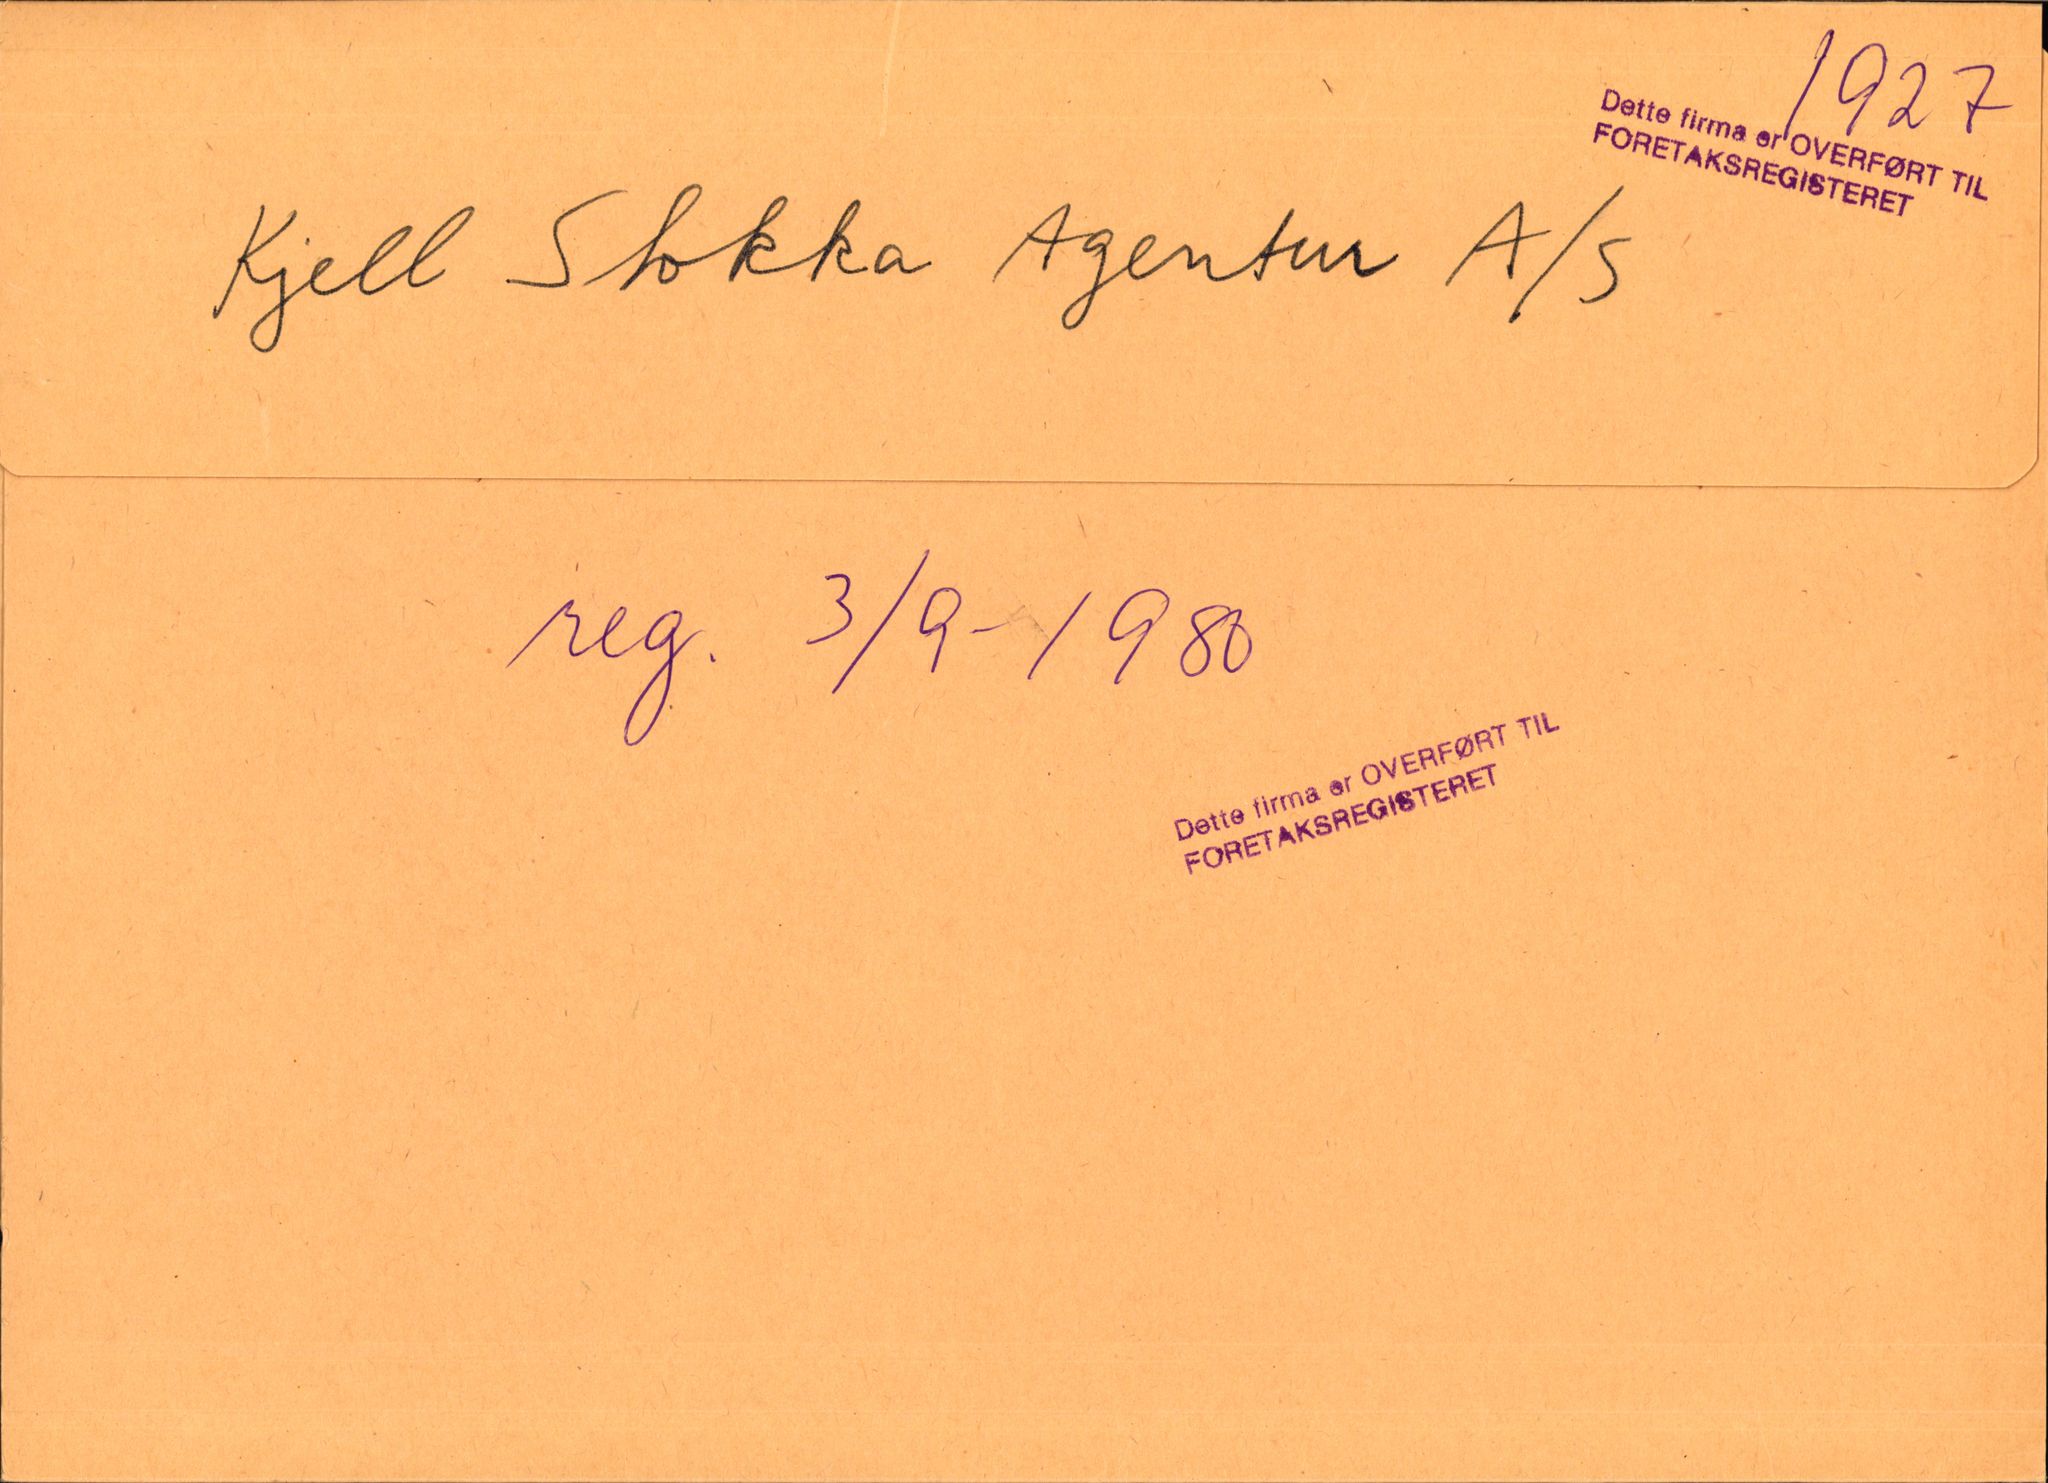 1927
Dette firma er OVERFØRT TIL
FORETAKSREGISTERET
Kjell Stokka Agentur A/S
reg. 3/9-1980
Dette firma er OVERFØRT TIL
FORETAKSREGISTERET